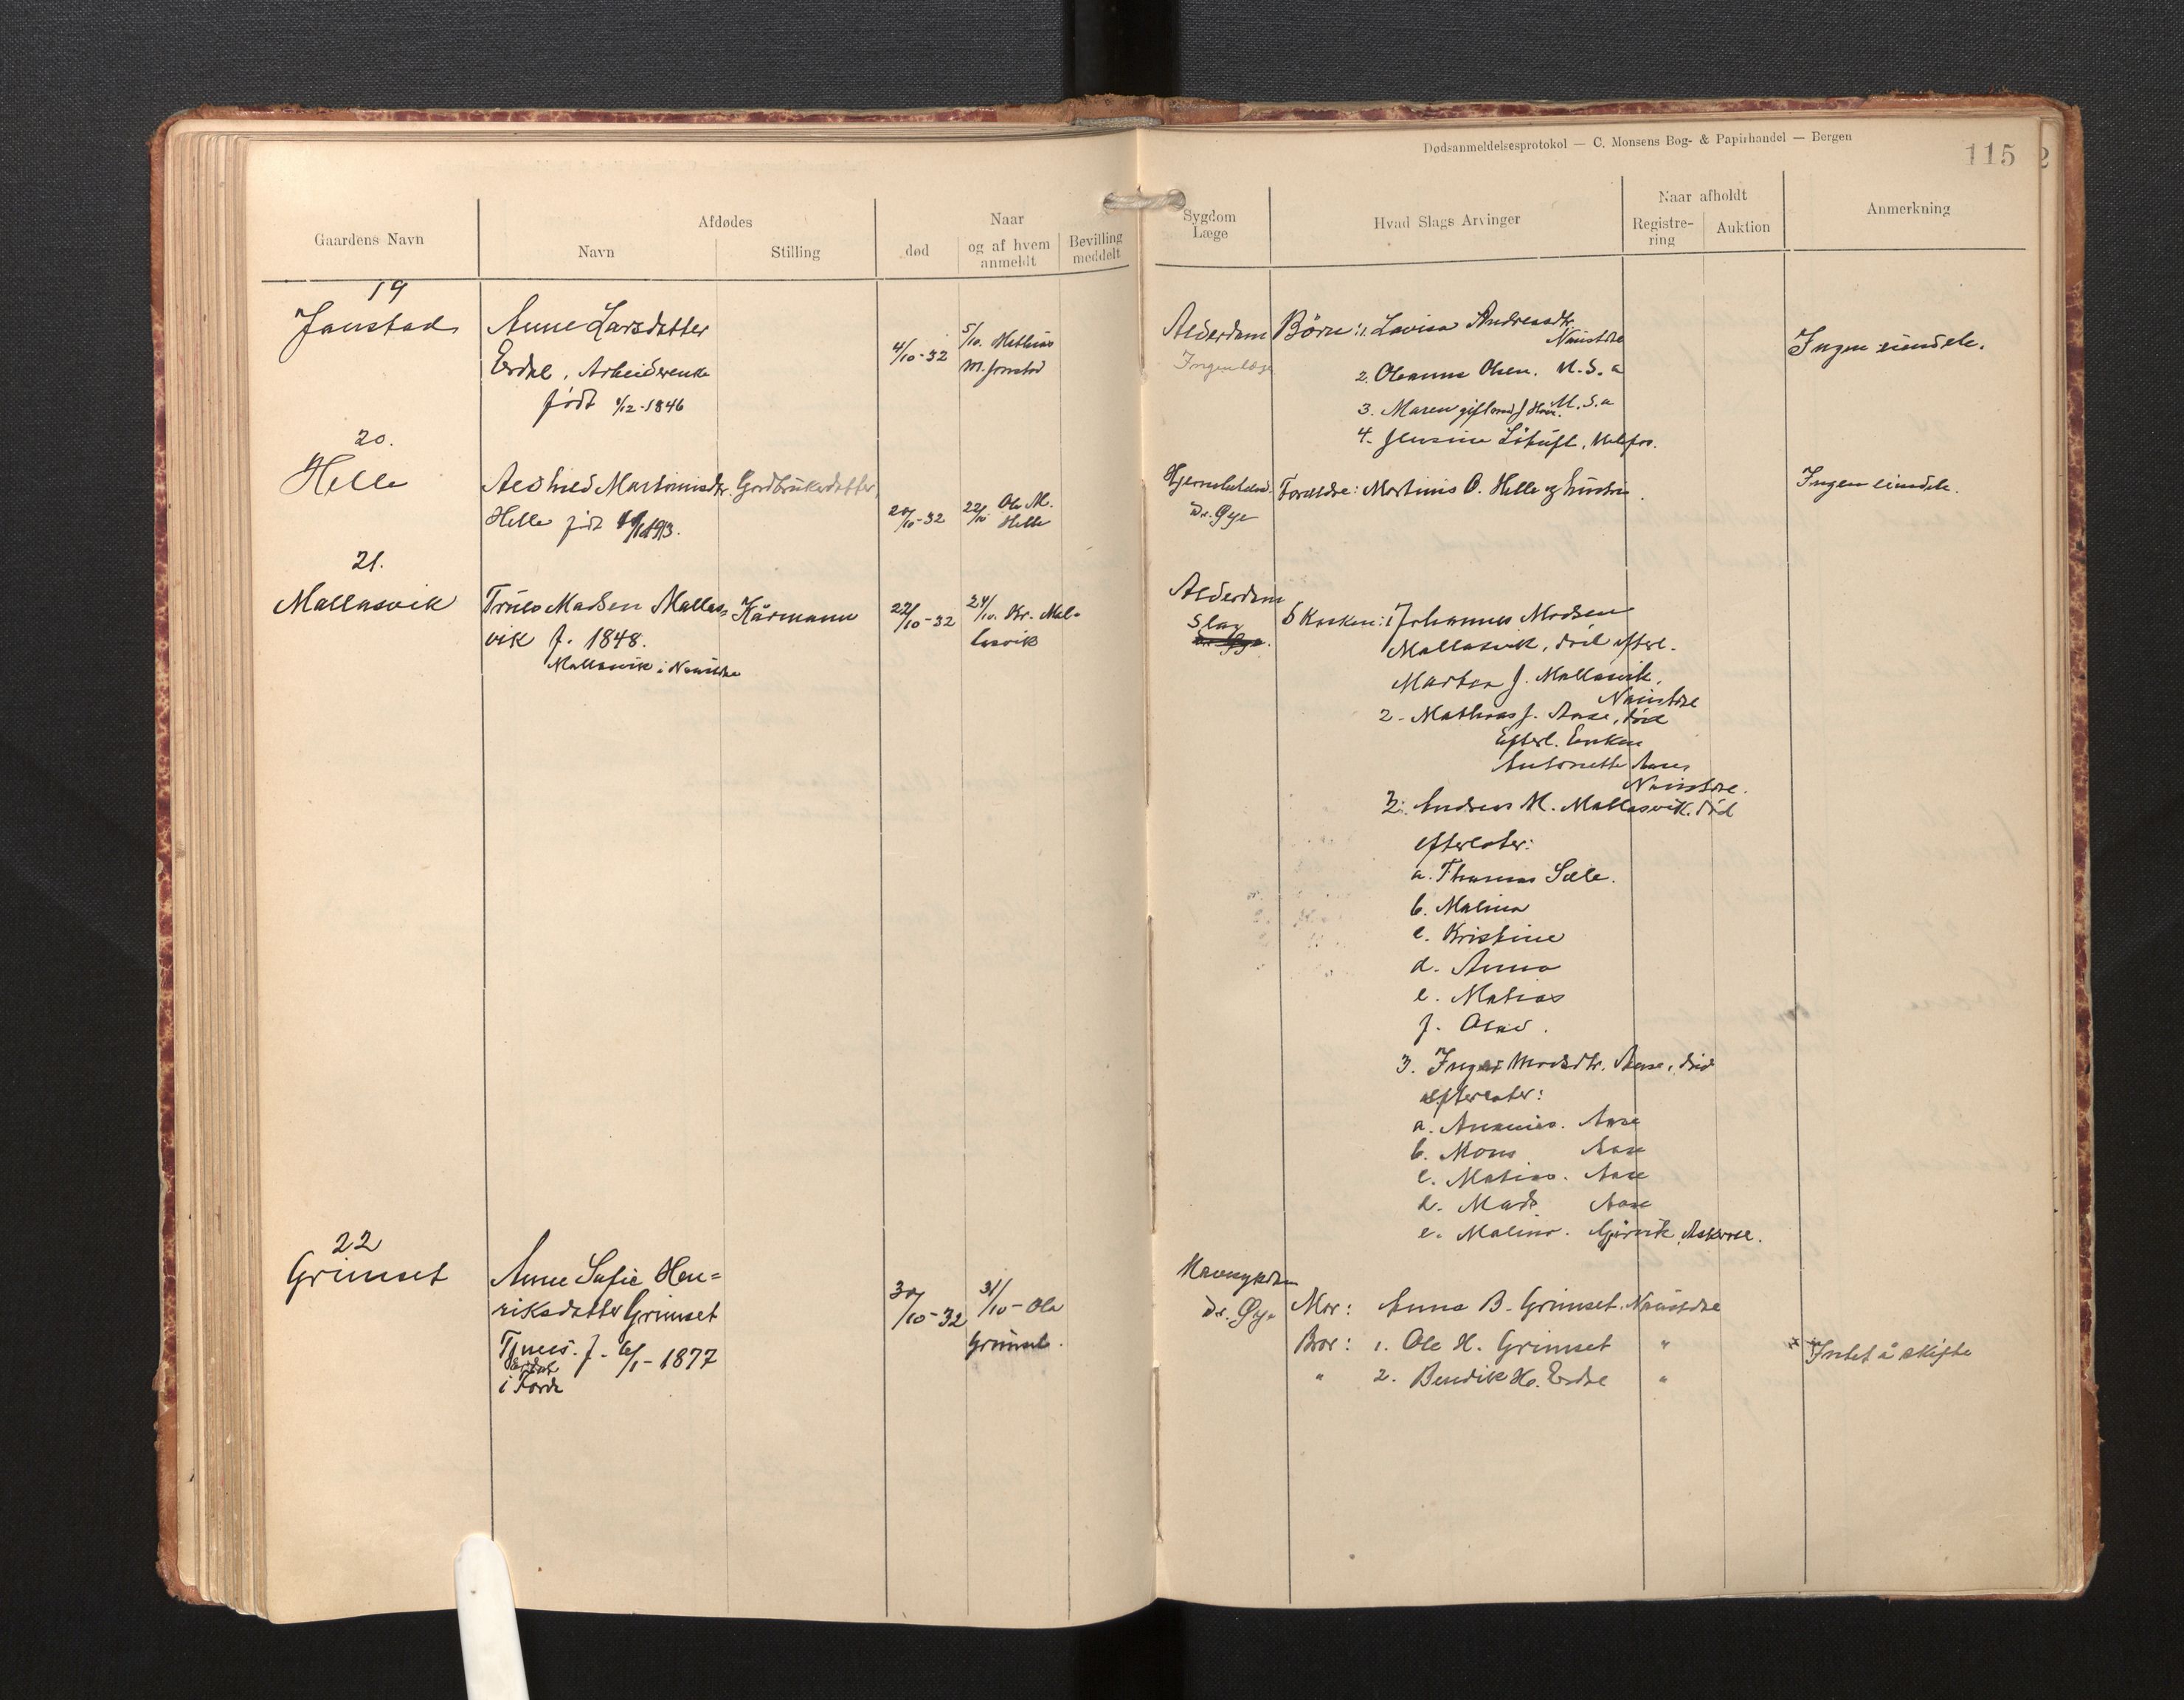 Dødsanmeldelsesprotokol — C. Monsens Bog- & Papirhandel — Bergen
115
Gaardens Navn
Afdødes
Navn
Stilling
Naar
død
og af hvem anmeldt
Bevilling meddelt
Sygdom
Læge
Hvad Slags Arvinger
Naar afholdt
Registre-
ring
Auktion
Anmerkning
19
Jonstad
Anne Larsdatter
Erdal, Arbeiderenke
født 1/12-1846
4/10-32
5/10. Mathias
M. Jonstad
Alderdom
Ingen læge
Börn: 1. Lovisa Andreasdtr.
Naustdal
2. Oleanna Olsen. U.S.a
3. Maren gift med J. U.S.a
4. Jensine
Ingen eiendele.
20.
Helle
Martinusdtr. Gardbrukerdatter
Helle født
20/10-32
22/10 Ole M.
Helle
Dr. Øye
Foreldre: Martinus O. Helle og hustru.
Ingen eiendele.
21.
Mallasvik
Truls Madsen Mallas-
vik f. 1848.
Mallasvik i Naustdal
Kårmann
22/10-32
24/10. Kr. Mal-
lasvik
Alderdom
Slag
Dr. Øye.
Søsken: 1 Johannes Madsen
Mallasvik, död efterl.
Marten J. Mallasvik,
Naustdal
2. Mathias J. Aase, död
Efterl. Enken
Antonette Aase,
Naustdal.
3. Andreas M. Mallasvik. död
efterlater:
a. Thomas Sæle.
b. Malina
c. Kristine
d. Anna
e. Matias
f. Olav.
3. Inger Madsdtr. Aase, död
efterlater:
a. Ananias. Aase
b. Mons Aase
c. Matias. Aase
d. Mads Aase
e. Malina. Gjörvik, Askvoll.
22
Grimset
Anne Sofie Hen=
riksdatter Grimset
f. 6/1-1877
Erdal
i Förde
30/10-32
31/10- Ola
Grimset.
Mavesykdom
Dr. Øye
Mor: Anna B. Grimset. Naustdal
Bror: 1. Ole H. Grimset "
" 2. Bendik H. Erdal "
Intet å skifte